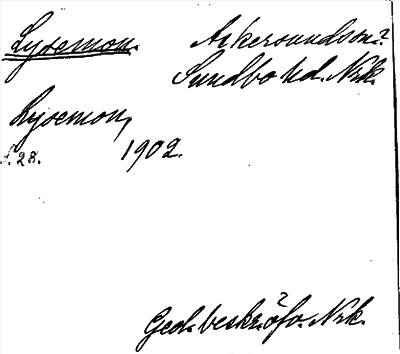 Lysemon. Askersunds sn.?
Sundbo hd. Nrk.
Lysemon,
s. 28. 1902.
Geol. beskr. öfv. Nrk.